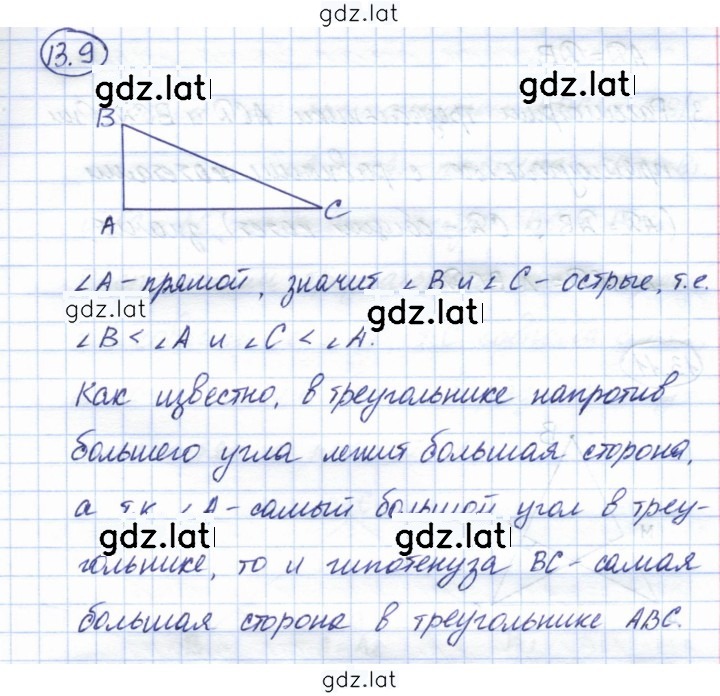 gdz.lat
13.9
gdz.lat gdz.lat
B
A C
∠A - прямой, значит ∠B и ∠C - острые, т.е.
gdz.lat gdz.lat
∠B < ∠A и ∠C < ∠A.
Как известно, в треугольнике напротив
большего угла лежит большая сторона,
а т.к. ∠A - самый большой угол в треу-
gdz.lat gdz.lat
гольнике, то и гипотенуза BC - самая
большая сторона в треугольнике ABC.
gdz.lat